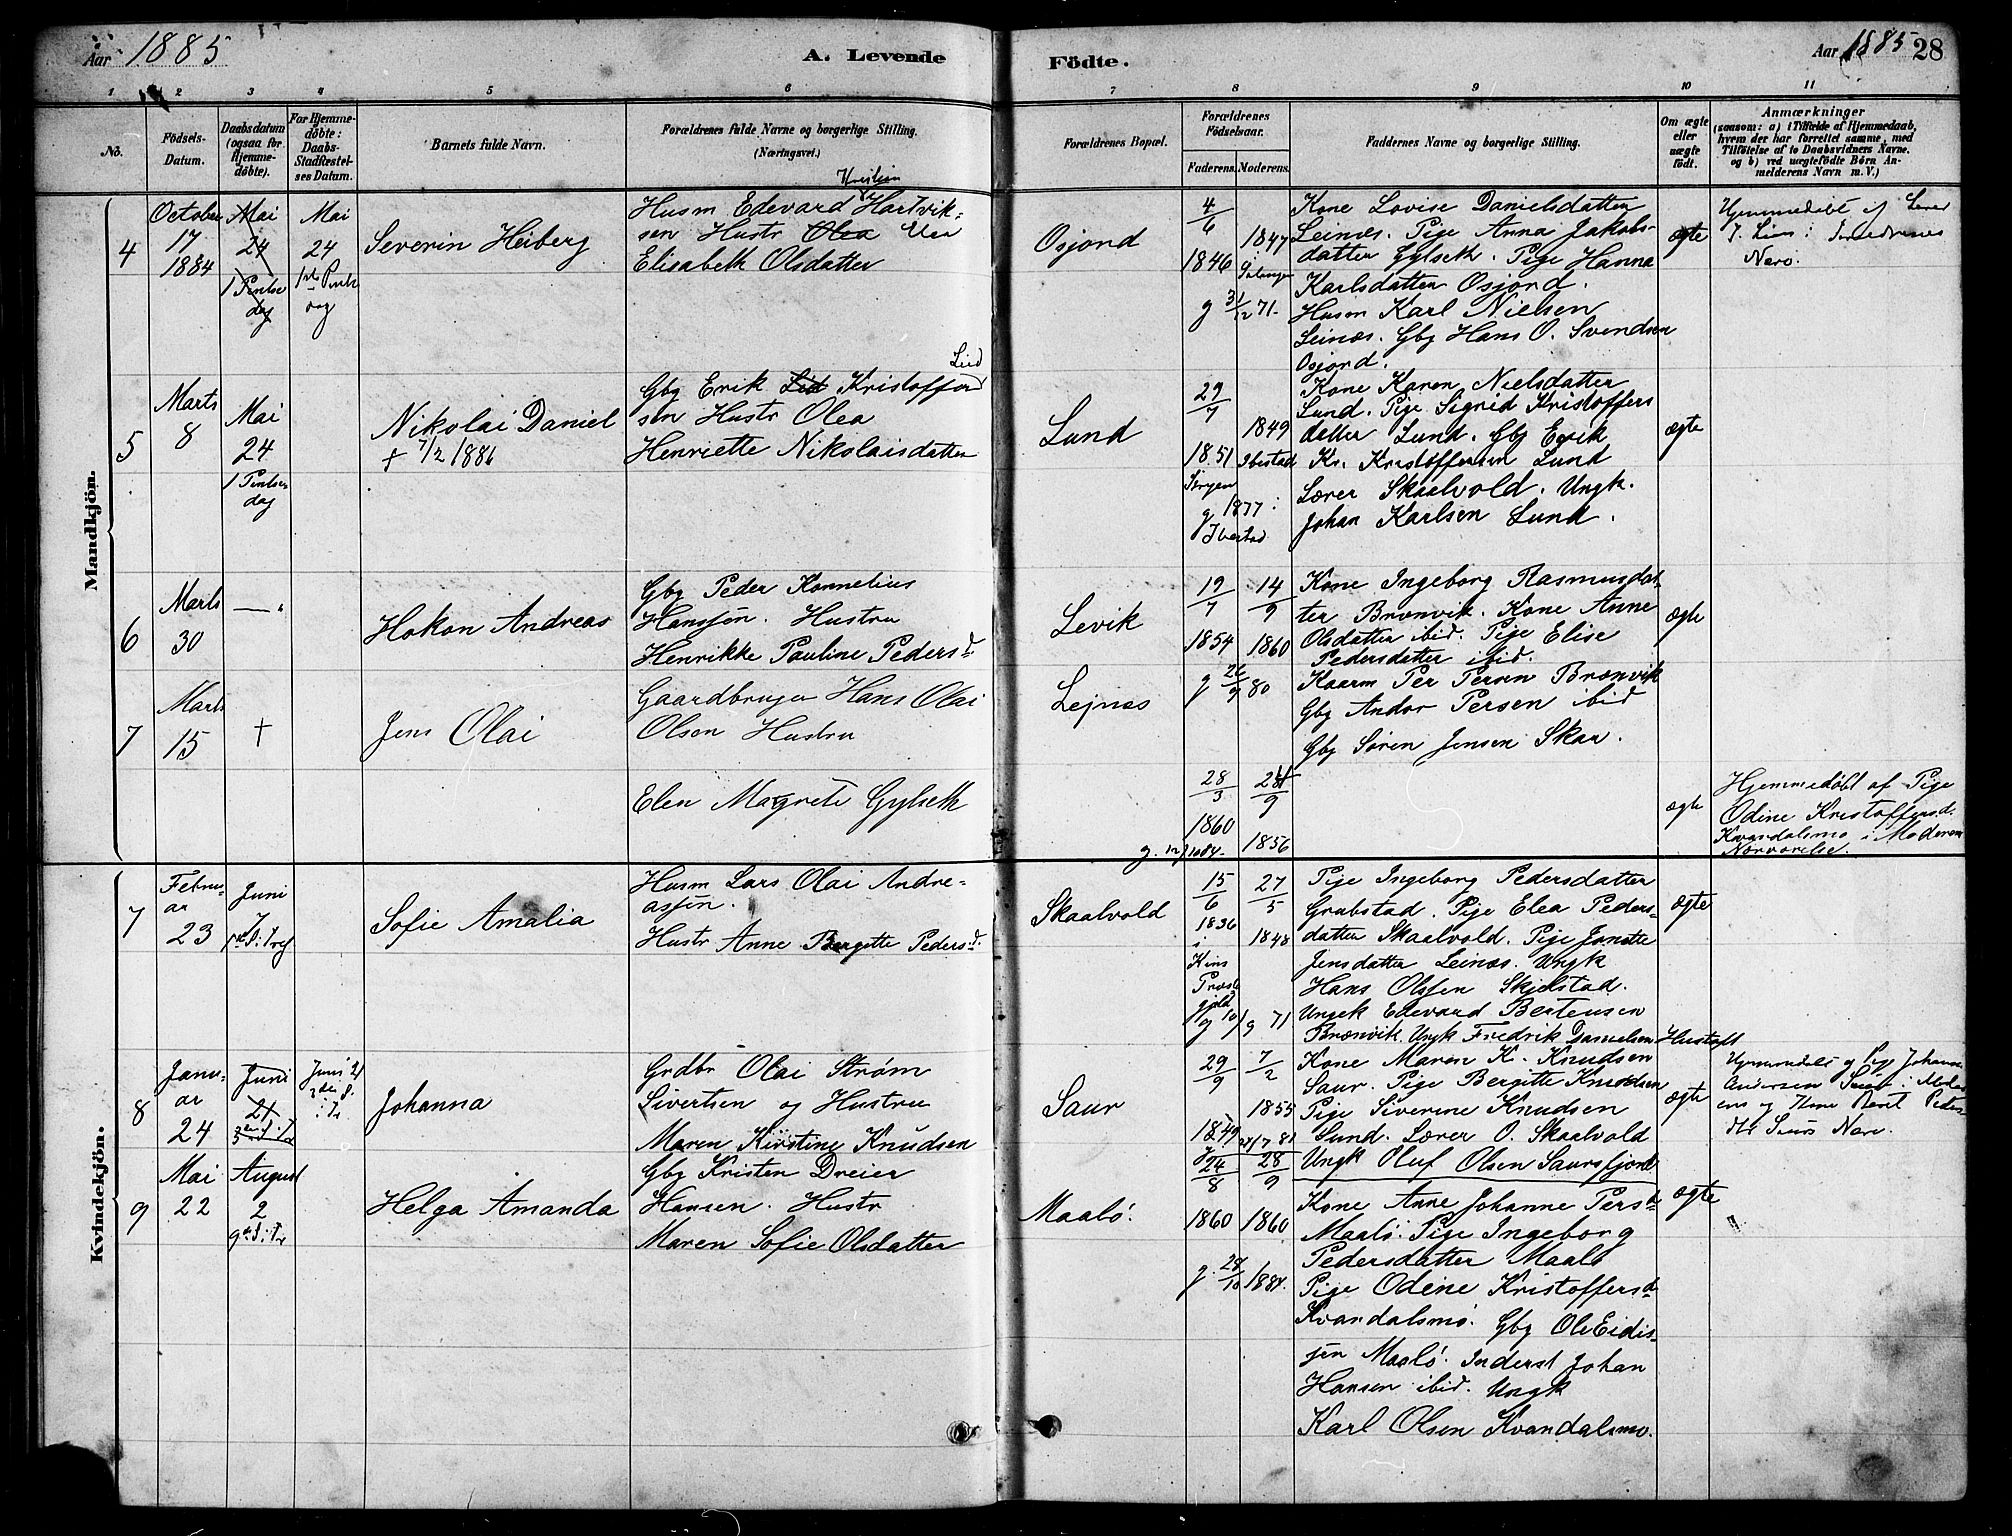 Aar 1885
A. Levende
Födte.
Aar 1885 28
1 2 3 4 5 6 7 8 9 10 11
No.
Födsels-
Datum.
Daabsdatum
(ogsaa for
Hjemme-
døbte).
For Hjemme-
døbte:
Daabs-
Stadfæstel-
ses Datum.
Barnets fulde Navn.
Forældrenes fulde Navne og borgerlige Stilling.
(Næringsvei.)
Forældrenes Bopæl.
Forældrenes
Födselsaar.
Faderens. Moderens.
Faddernes Navne og borgerlige Stilling.
Om ægte
eller
uægte
født.
Anmærkninger
(saasom: a) i Tilfælde af Hjemmedaab,
hvem der har forrettet samme, med
Tilføielse af to Daabsvidners Navne.
og b) ved uægtefödte Börn An-
melderens Navn m. V.)
Mandkjön.
4
October
17
1884
Mai
24
1 Pintse
dag
Mai
24
1ste Pintse
dag
Severin Heiberg
Kristian
Husm Edevard Hartvik-
sen Hustr Olea
Elisabeth Olsdatter
Osjord
4/6
1846
1847
g 31/12 71.
Kone Lovise Danielsdatter
Leinæs. Pige Anna Jakobs-
datter Gylseth. Pige Hanna
Karlsdatter Osjord.
Husm Karl Nielsen
Leinæs. Gbg Hans O. Svendsen
Osjord.
ægte
Hjemmedøbt af
Nærv.
5
Marts
8
Mai
24
1 Pintse
dag
Nikolai Daniel
+ 7/2 1886
Lund
Gbg Erik Kristoffer
sen Hustr Olea
Henriette Nikolaisdatter
Lund
29/7
1851
1849
Ibestad
g 1877
Ibestad
Kone Karen Nielsdatter
Lund. Pige Sigrid Kristoffers
datter Lund. Gbg Erik
Kr. Kristoffersen Lund
Lærer Skaalvold. Ungk.
Johan Karlsen Lund.
ægte
6
Marts
30
Hakon Andreas
Gbg Peder Kornelius
Hanssøn. Hustru
Henrikke Pauline Pedersd.
Levik
19/7
1854
14/9
1860
g 26/9 80
Kone Ingeborg Rasmusdat-
ter Brenvik. Kone Anne
Olsdatter ibid. Pige Elise
Pedersdatter ibid.
Kaarm Per Persen Brenvik
Gbg Andor Persen ibid
Gbg Søren Jensen Skar.
ægte
7
Marts
15
+
Jens Olai
Gaardbruger Hans Olai
Olsen Hustru
Elen Magrete Gylseth
Lejnes
28/3
1860
9
1856
ægte
Hjemmedøbt af Pige
Odine Kristoffersd.
Kvandalsmo i Moderens
Nærværelse.
Kvindekjön.
7
Febru-
ar
23
Juni
Sofie Amalia
Husm Lars Olai Andre-
assøn.
Hustr Anne Bergitte Pedersd.
Skaalvold
15/6
1836
i
Præste
gjeld
27/5
1848
g 71
Pige Ingeborg Pedersdatter
Grubstad. Pige Elea Peders-
datter Skaalvold. Pige Janette
Jensdatter Leinæs. Ungk
Hans Olsen Skjelstad.
Ungek Edevard Bertensen
Brænvik. Ungk Fredrik Danielsen Hustoft
ægte
8
Janu-
ar
24
Juni
21
Juni 21
Johanna
Grdbr Olai Strøm
Sivertsen og Hustru
Maren Kirstine Knudsen
Saur
29/9
1849
7/2
1855
Kone Maren K. Knudsen
Saur. Pige Bergitte Knudsen
Pige Siverine Knudsen
Lund. Lærer O. Skaalvold
Ungk Oluf Olsen Saursfjord
ægte
Hjemmedøbt af Pige Johanna
Andersen
9
Mai
22
August
2
Helga Amanda
Gbg Kristen Dreier
Hansen. Hustr
Maren Sofie Olsdatter
Maalö.
24/8
1860
28/9
1860
g. 28/10 1884.
Kone Anne Johanne Persd.
Maalö. Pige Ingeborg
Pedersdatter Maalö
Pige Odine Kristoffersd.
Kvandalsmo. Gbg Ole Eidis-
sen Maalö. Inderst Johan
Hansen ibid. Ungk
Karl Olsen Kvandalsmo.
ægte